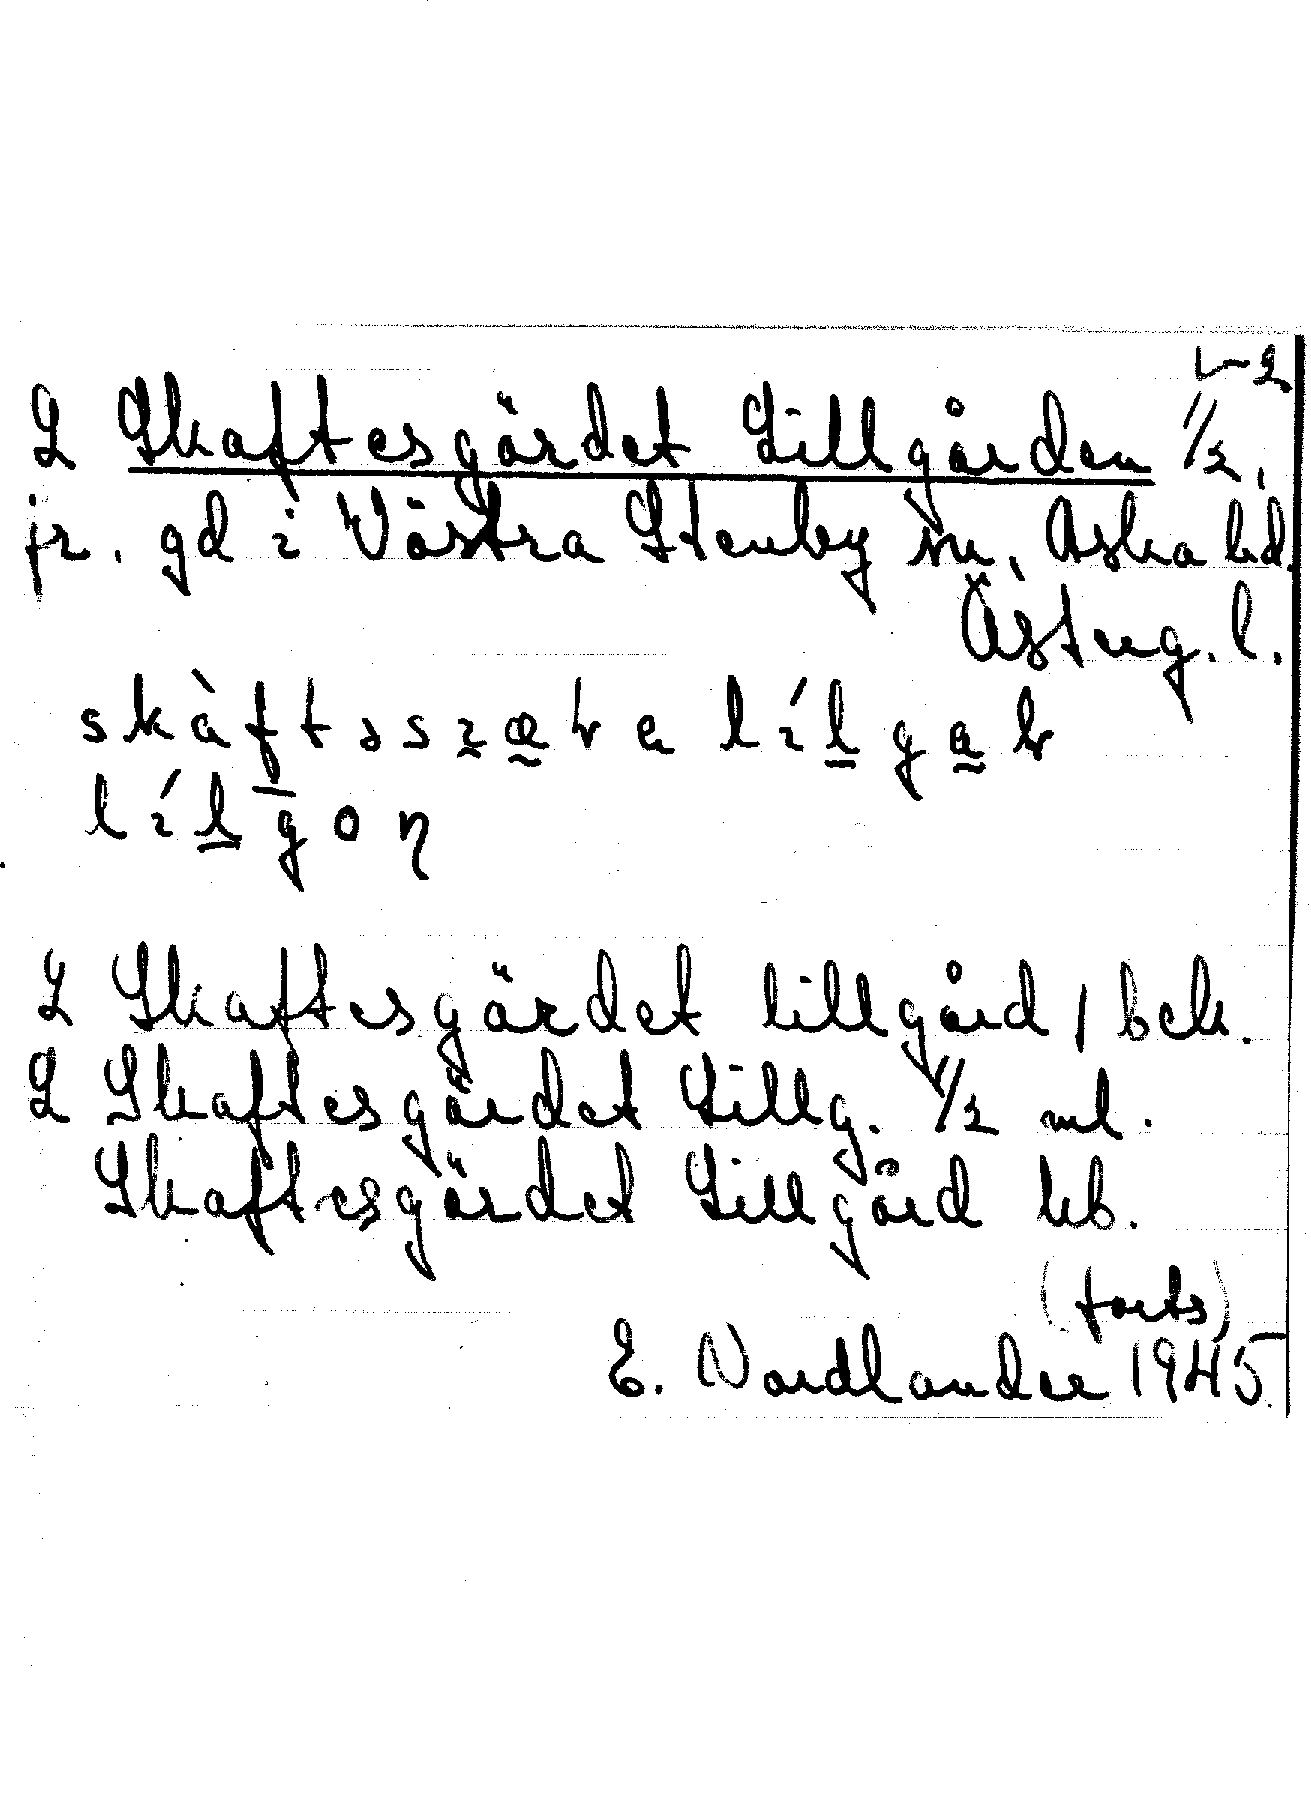 1-2
2 Skaftesgärdet Lillgården 1/2,
jr. gd i Västra Stenby sn, Aska hd.
Österg. l.
skàftəsɀærɐ lílgaɽ
lílgon
2 Skaftesgärdet lillgård 1 bek.
2 Skaftesgärdet Lillg. 1/2 ml.
Skaftesgärdet Lillgård kb.
(forts)
E. Nordlander 1945